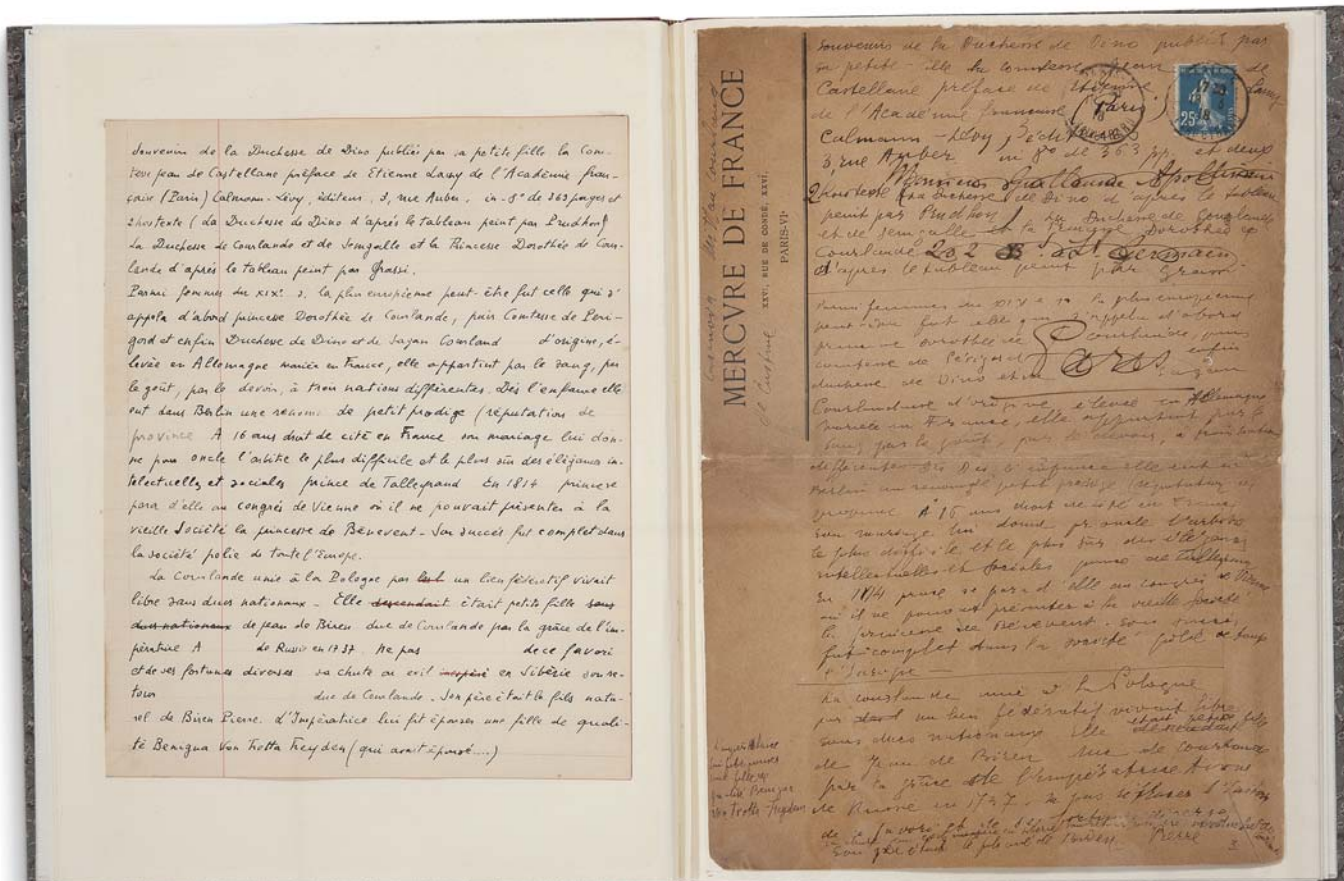 Souvenir de la Duchesse de Dino publiée par sa petite fille la Com-
tesse Jean de Castellane préface de Etienne Lamy de l'Académie fran-
çaise (Paris) Calmann-Lévy, éditeurs, 3, rue Auber, in-8° de 363 pages et
2 hostexte (la Duchesse de Dino d'après le tableau peint par Prudhon)
La Duchesse de Courlande et de Semgalle et la Princesse Dorothée de Cour-
lande d'après le tableau peint par Grassi.
Parmi femmes du XIXe s. la plus européenne peut-être fut celle qui s'
appela d'abord princesse Dorothée de Courlande, puis Comtesse de Péri-
gord et enfin Duchesse de Dino et de Sagan Courland d'origine, é-
levée en Allemagne mariée en France, elle appartint par le sang, par
le goût, par le devoir, à trois nations différentes. Dès l'enfance elle
eut dans Berlin une renom de petit prodige (réputation de
province A 16 ans droit de cité en France son mariage lui don-
ne pour oncle l'arbitre le plus difficile et le plus sûr des élégances in-
tellectuelles et sociales prince de Talleyrand En 1814 prince se
para d'elle au congrès de Vienne où il ne pouvait présenter à la
vieille Société la princesse de Bénévent - Son succès fut complet dans
la société polie de toute l'Europe.
La Courlande unie à la Pologne par un lien fédératif vivait
libre sous ducs nationaux - Elle descendait était petite fille sous
ducs nationaux de Jean de Biren duc de Courlande par la grâce de l'im-
pératrice A de Russie en 1737. Ne pas de ce favori
et de ses fortunes diverses sa chute en exil en Sibérie son re-
tour duc de Courlande. Son père était le fils natu-
rel de Biren Pierre. L'Impératrice lui fit épouser une fille de quali-
té Benigna Von Trotta Treyden (qui avait épousé....)
MERCVRE DE FRANCE
XXVI, RUE DE CONDÉ, XXVI,
PARIS-VIe
Souvenirs de la Duchesse de Dino publiés par
sa petite-fille la comtesse Jean de
Castellane préface de Etienne Lamy
de l'Académie française (Paris)
Calmann-Lévy, édit
3, rue Auber in 8° de 363 pp. et deux
Monsieur Guillaume Apollinaire
2 hostexte (La Duchesse de Dino d'après le tableau
peint par Prudhon) La Duchesse de Courlande
et de Semgalle et la Princesse Dorothée de
Courlande 202 Bd St Germain
d'après le tableau peint par Grassi
25c
Parmi femmes du XIX e s. la plus européenne
peut-être fut celle qui s'appela d'abord
princesse Dorothée de Courlande, puis
comtesse de Périgord Paris enfin
duchesse de Dino et de Sagan
Courlandaise d'origine élevée en Allemagne
mariée en France, elle appartint par le
sang par le goût, par le devoir, à trois nations
différentes Dès l'enfance elle eut en
Berlin un renom de petit prodige (réputation de
province A 16 ans droit de cité en France
son mariage lui donne pr oncle l'arbitre
le plus difficile et le plus sûr des élégances
intellectuelles et sociales prince de Talleyrand
En 1814 prince se para d'elle au congrès de Vienne
où il ne pouvait présenter à la vieille Société
la princesse de Bénévent. Son succès
fut complet dans la société polie de toute
l'Europe
La Courlande unie à la Pologne
par un lien fédératif vivait libre
sous ducs nationaux Elle descendait était petite fille
de Jean de Biren duc de Courlande
par la grâce de l'impératrice Anne
de Russie en 1737. Ne pas
de favori
Son père était le fils de Biren Pierre
lui fit épouser
une fille de
qualité Benigna
Von Trotta-Treyden
3